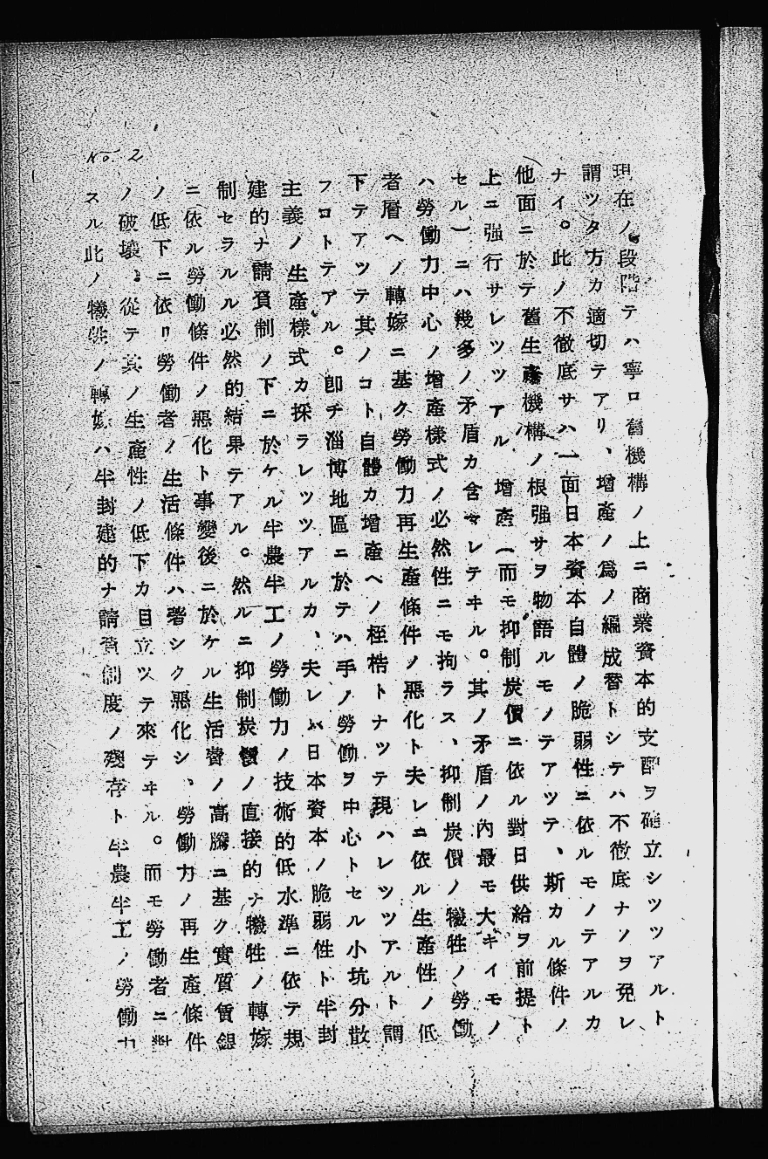 No. 2
現在ノ段階テハ寧ロ舊機構ノ上ニ商業資本的支配ヲ確立シツツアルト
謂ツタ方カ適切テアリ、增產ノ爲ノ編成替トシテハ不徹底ナソヲ免レ
ナイ。此ノ不徹底サハ一面日本資本自體ノ脆弱性ニ依ルモノテアルカ
他面ニ於テ舊生產機構ノ根强サヲ物語ルモノテアツテ、斯カル條件ノ
上ニ强行サレツツアル增產(而モ抑制炭價ニ依ル對日供給ヲ前提ト
セル)ニハ幾多ノ矛盾カ含マレテヰル。其ノ矛盾ノ內最モ大キイモノ
ハ勞働力中心ノ增產樣式ノ必然性ニモ拘ラス、抑制炭價ノ犧牲ノ勞働
者層ヘノ轉嫁ニ基ク勞働力再生產條件ノ惡化ト夫レニ依ル生產性ノ低
下テアツテ其ノコト自體カ增產ヘノ桎梏トナツテ現ハレツツアルト謂
フコトテアル。卽チ淄博地區ニ於テハ手ノ勞働ヲ中心トセル小坑分散
主義ノ生產樣式カ採ラレツツアルカ、夫レハ日本資本ノ脆弱性ト半封
建的ナ請負制ノ下ニ於ケル半農半工ノ勞働力ノ技術的低水準ニ依テ規
制セラルル必然的結果テアル。然ルニ抑制炭價ノ直接的ナ犧牲ノ轉嫁
ニ依ル勞働條件ノ惡化ト事變後ニ於ケル生活費ノ高騰ニ基ク實質賃銀
ノ低下ニ依リ勞働者ノ生活條件ハ著シク惡化シ、勞働力ノ再生產條件
ノ破壞、從テ其ノ生產性ノ低下カ目立ツテ來テヰル。而モ勞働者ニ對
スル此ノ犧牲ノ轉嫁ハ半封建的ナ請負制度ノ殘存ト半農半工ノ勞働力